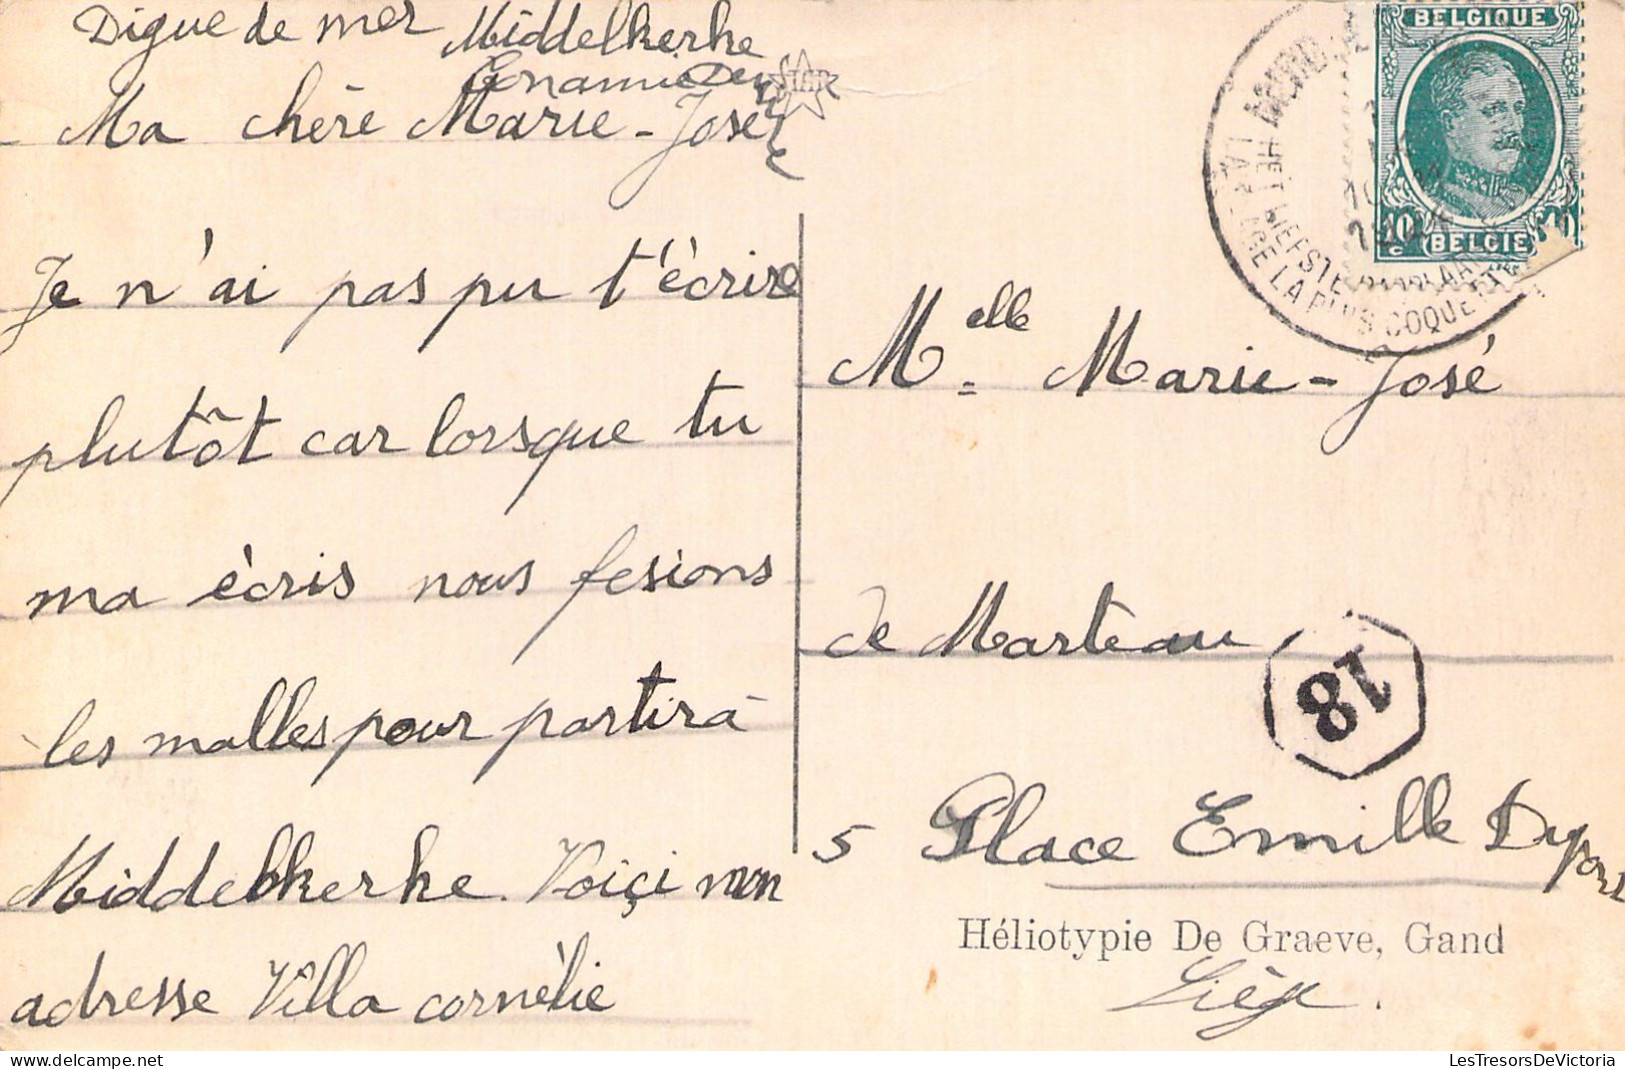 Digue de mer Middelkerke
Ma chère Marie-José
Je n'ai pas pu t'écrire
plutôt car lorsque tu
ma écris nous fesions
les malles pour partir à
Middelkerke. Voiçi mon
adresse Villa cornélie
STAR
BELGIQUE
10 c
BELGIE
LA PLAGE LA PLUS COQUETTE
HET LIEFSTE
Melle Marie-José
de Marteau
18
5 Place Emille Dupont
Héliotypie De Graeve, Gand
Liège.
LesTresorsDeVictoria